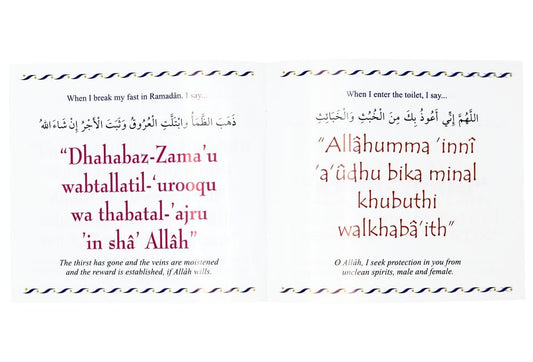 When I break my fast in Ramadân, I say...
ذَهَبَ الظَّمَأُ وابْتَلَّتِ الْعُرُوْقُ وَثَبَتَ الْأَجْرُ إِنْ شَاءَ اللهُ
“Dhahabaz-Zama’u
wabtallatil-‘urooqu
wa thabatal-’ajru
’in shâ’ Allâh”
The thirst has gone and the veins are moistened
and the reward is established, if Allâh wills.
When I enter the toilet, I say...
اللَّهُمَّ إِنِّي أَعُوذُ بِكَ مِنَ الْخُبُثِ وَالْخَبَائِثِ
“Allâhumma ’innî
’a‘ûdhu bika minal
khubuthi
walkhabâ’ith”
O Allâh, I seek protection in you from
unclean spirits, male and female.